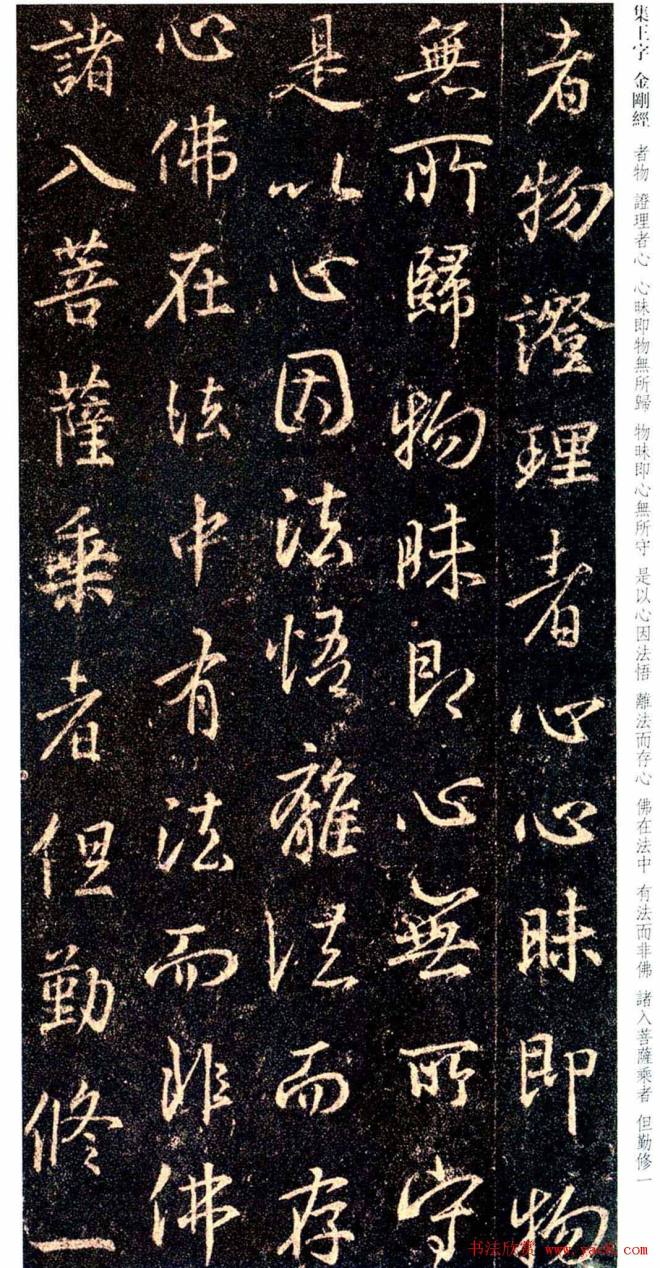 集王字 金剛經 者物 證理者心 心昧即物無所歸 物昧即心無所守 是以心因法悟 離法而存心 佛在法中 有法而非佛 諸入菩薩乘者 但勤修一
者物證理者心心昧即物
無所歸物昧即心無所守
是以心因法悟離法而存
心佛在法中有法而非佛
諸入菩薩乘者但勤修一
书法欣赏 www.yac8.com